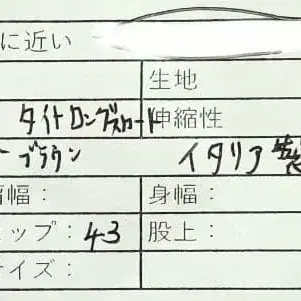 に近い
生地
タイトロングスカート 伸縮性
ブラウン イタリア製
肩幅： 身幅：
ップ： 43 股上：
イズ：